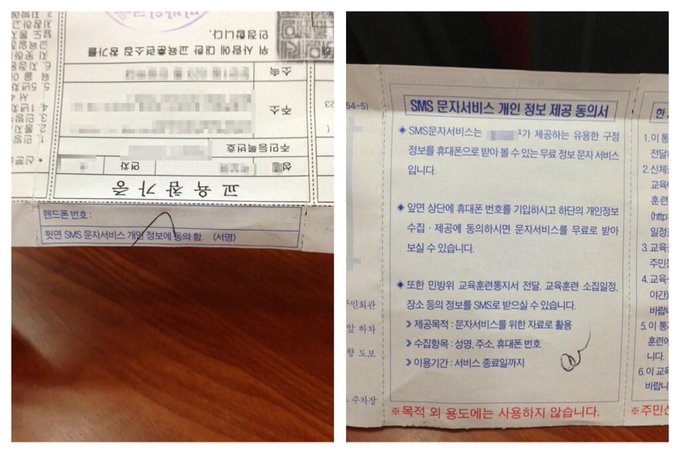 위 사람에 대한 교육훈련소집 참가를
인정합니다.
소 속
주 소
주민등록번호
성명
연차
교 육 참 가 증
핸드폰 번호 :
뒷면 SMS 문자서비스 개인 정보에 동의 함. (서명)
54-5)
SMS 문자서비스 개인 정보 제공 동의서
SMS문자서비스는
가 제공하는 유용한 구정
정보를 휴대폰으로 받아 볼 수 있는 무료 정보 문자 서비스
입니다.
앞면 상단에 휴대폰 번호를 기입하시고 하단의 개인정보
수집·제공에 동의하시면 문자서비스를 무료로 받아
보실 수 있습니다.
또한 민방위 교육훈련통지서 전달, 교육훈련 소집일정,
장소 등의 정보를 SMS로 받으실 수 있습니다.
제공목적 : 문자서비스를 위한 자료로 활용
수집항목 : 성명, 주소, 휴대폰 번호
이용기간 : 서비스 종료일까지
※목적 외 용도에는 사용하지 않습니다.
민회관
알 하차
향 도보
주차장
1. 이 통
전달
2. 신체
교육
훈련
(http
일정
3. 교육
주민
4. 교육
야간)
바랍니
5. 이 통
훈련에
니다.
6. 이 교육
바랍니
※주민신